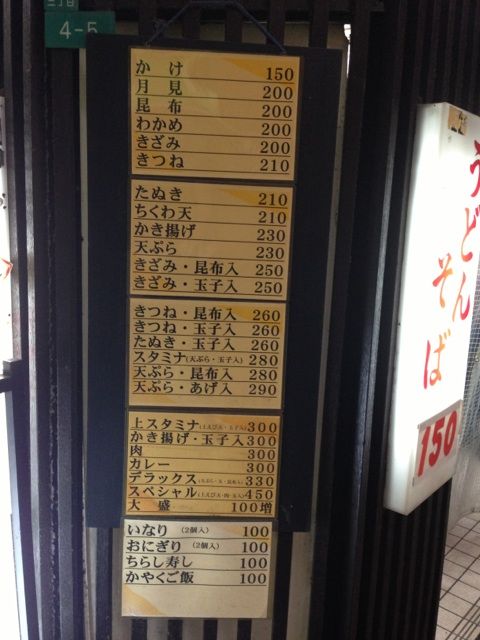 三丁目
4-5
かけ 150
月見 200
昆布 200
わかめ 200
きざみ 200
きつね 210
たぬき 210
ちくわ天 210
かき揚げ 230
天ぷら 230
きざみ・昆布入 250
きざみ・玉子入 250
きつね・昆布入 260
きつね・玉子入 260
たぬき・玉子入 260
スタミナ(天ぷら・玉子入) 280
天ぷら・昆布入 280
天ぷら・あげ入 290
上スタミナ 300
かき揚げ・玉子入 300
肉 300
カレー 300
デラックス 330
スペシャル 450
大盛 100増
いなり (2個入) 100
おにぎり (2個入) 100
ちらし寿し 100
かやくご飯 100
うどん
そば
150